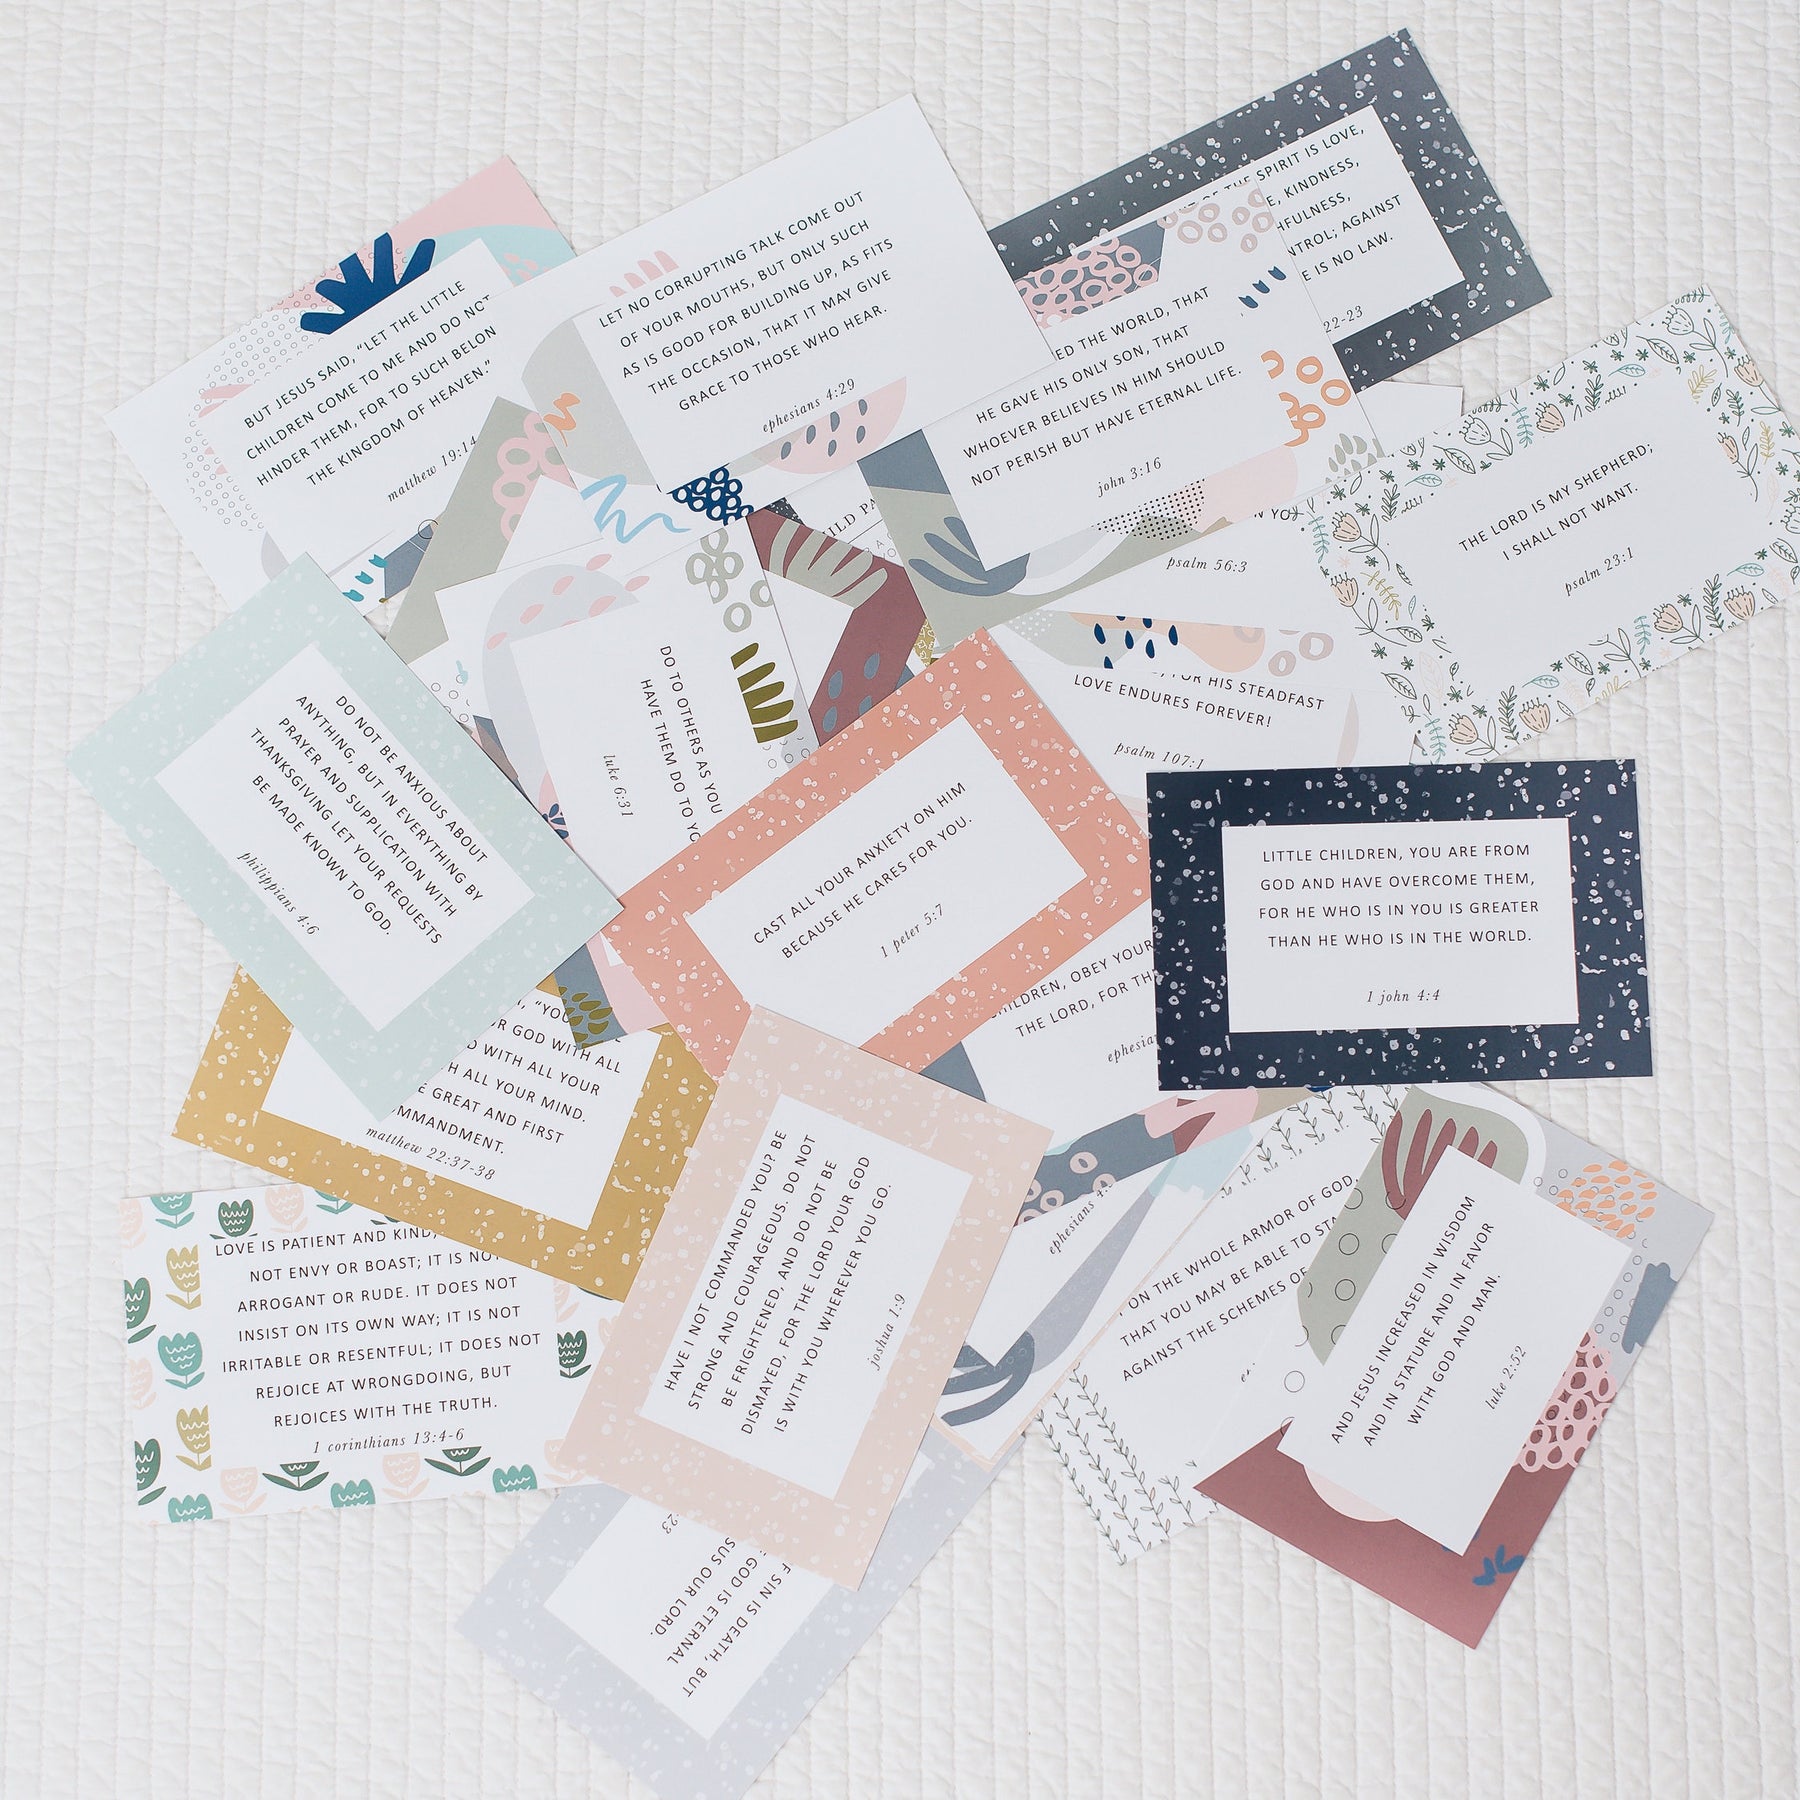 BUT JESUS SAID, "LET THE LITTLE
CHILDREN COME TO ME AND DO NOT
HINDER THEM, FOR TO SUCH BELON
THE KINGDOM OF HEAVEN."
matthew 19:14
LET NO CORRUPTING TALK COME OUT
OF YOUR MOUTHS, BUT ONLY SUCH
AS IS GOOD FOR BUILDING UP, AS FITS
THE OCCASION, THAT IT MAY GIVE
GRACE TO THOSE WHO HEAR.
ephesians 4:29
OF THE SPIRIT IS LOVE,
E, KINDNESS,
HFULNESS,
NTROL; AGAINST
E IS NO LAW.
22-23
ED THE WORLD, THAT
HE GAVE HIS ONLY SON, THAT
WHOEVER BELIEVES IN HIM SHOULD
NOT PERISH BUT HAVE ETERNAL LIFE.
john 3:16
THE LORD IS MY SHEPHERD;
I SHALL NOT WANT.
psalm 23:1
ILD PA
N YO
psalm 56:3
, FOR HIS STEADFAST
LOVE ENDURES FOREVER!
psalm 107:1
DO TO OTHERS AS YOU
HAVE THEM DO TO YO
luke 6:31
DO NOT BE ANXIOUS ABOUT
ANYTHING, BUT IN EVERYTHING BY
PRAYER AND SUPPLICATION WITH
THANKSGIVING LET YOUR REQUESTS
BE MADE KNOWN TO GOD.
philippians 4:6
CAST ALL YOUR ANXIETY ON HIM
BECAUSE HE CARES FOR YOU.
1 peter 5:7
LITTLE CHILDREN, YOU ARE FROM
GOD AND HAVE OVERCOME THEM,
FOR HE WHO IS IN YOU IS GREATER
THAN HE WHO IS IN THE WORLD.
1 john 4:4
HILDREN, OBEY YOUR
THE LORD, FOR TH
ephesia
, "YOU
R GOD WITH ALL
D WITH ALL YOUR
H ALL YOUR MIND.
E GREAT AND FIRST
MMANDMENT.
matthew 22:37-38
LOVE IS PATIENT AND KIND,
NOT ENVY OR BOAST; IT IS NOT
ARROGANT OR RUDE. IT DOES NOT
INSIST ON ITS OWN WAY; IT IS NOT
IRRITABLE OR RESENTFUL; IT DOES NOT
REJOICE AT WRONGDOING, BUT
REJOICES WITH THE TRUTH.
1 corinthians 13:4-6
HAVE I NOT COMMANDED YOU? BE
STRONG AND COURAGEOUS. DO NOT
BE FRIGHTENED, AND DO NOT BE
DISMAYED, FOR THE LORD YOUR GOD
IS WITH YOU WHEREVER YOU GO.
joshua 1:9
ephesians 4:
ON THE WHOLE ARMOR OF GOD,
THAT YOU MAY BE ABLE TO STA
AGAINST THE SCHEMES OF
AND JESUS INCREASED IN WISDOM
AND IN STATURE AND IN FAVOR
WITH GOD AND MAN.
luke 2:52
F SIN IS DEATH, BUT
GOD IS ETERNAL
SUS OUR LORD.
:23